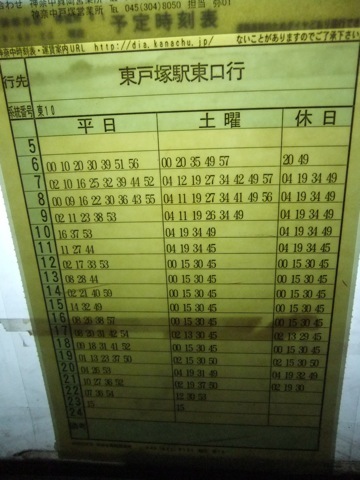 神奈中戸塚営業所 TEL 045(304)8050 担当 弥01
予定時刻表
神奈中時刻表・運賃案内URL http://dia.kanachu.jp/ ないことがありますのでご了承下さい
行先 東戸塚駅東口行
系統番号 東10
平日 土曜 休日
5
6 00 10 20 30 39 51 56 00 20 35 49 57 20 49
7 02 10 16 25 32 39 44 52 04 12 19 27 34 42 49 57 04 19 34 49
8 00 09 16 22 30 36 43 55 04 11 19 27 34 41 49 56 04 19 34 49
9 02 11 23 38 53 04 11 19 26 34 49 04 19 34 49
10 16 37 53 04 19 34 49 04 19 34 49
11 11 27 44 04 19 34 45 04 19 34 45
12 02 17 33 53 00 15 30 45 00 15 30 45
13 08 28 44 00 15 30 45 00 15 30 45
14 02 21 40 59 00 15 30 45 00 15 30 45
15 14 32 49 00 15 30 45 00 15 30 45
16 08 26 38 57 00 15 30 45 00 15 30 45
17 08 20 31 42 54 02 13 30 45 02 13 29 45
18 09 18 31 41 52 00 15 30 45 00 15 30 45
19 01 13 23 37 50 02 15 30 50 02 15 30 50
20 04 26 53 04 19 31 49 04 19 32 49
21 10 27 36 52 02 19 37 50 02 19 38
22 07 36 54 12 30 53
23 15 15
24
備考